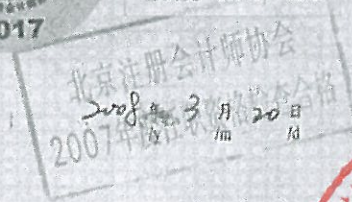 017
北京注册会计师协会
2008年 3月 20日
/y /m /d
2007年度任职资格检查合格